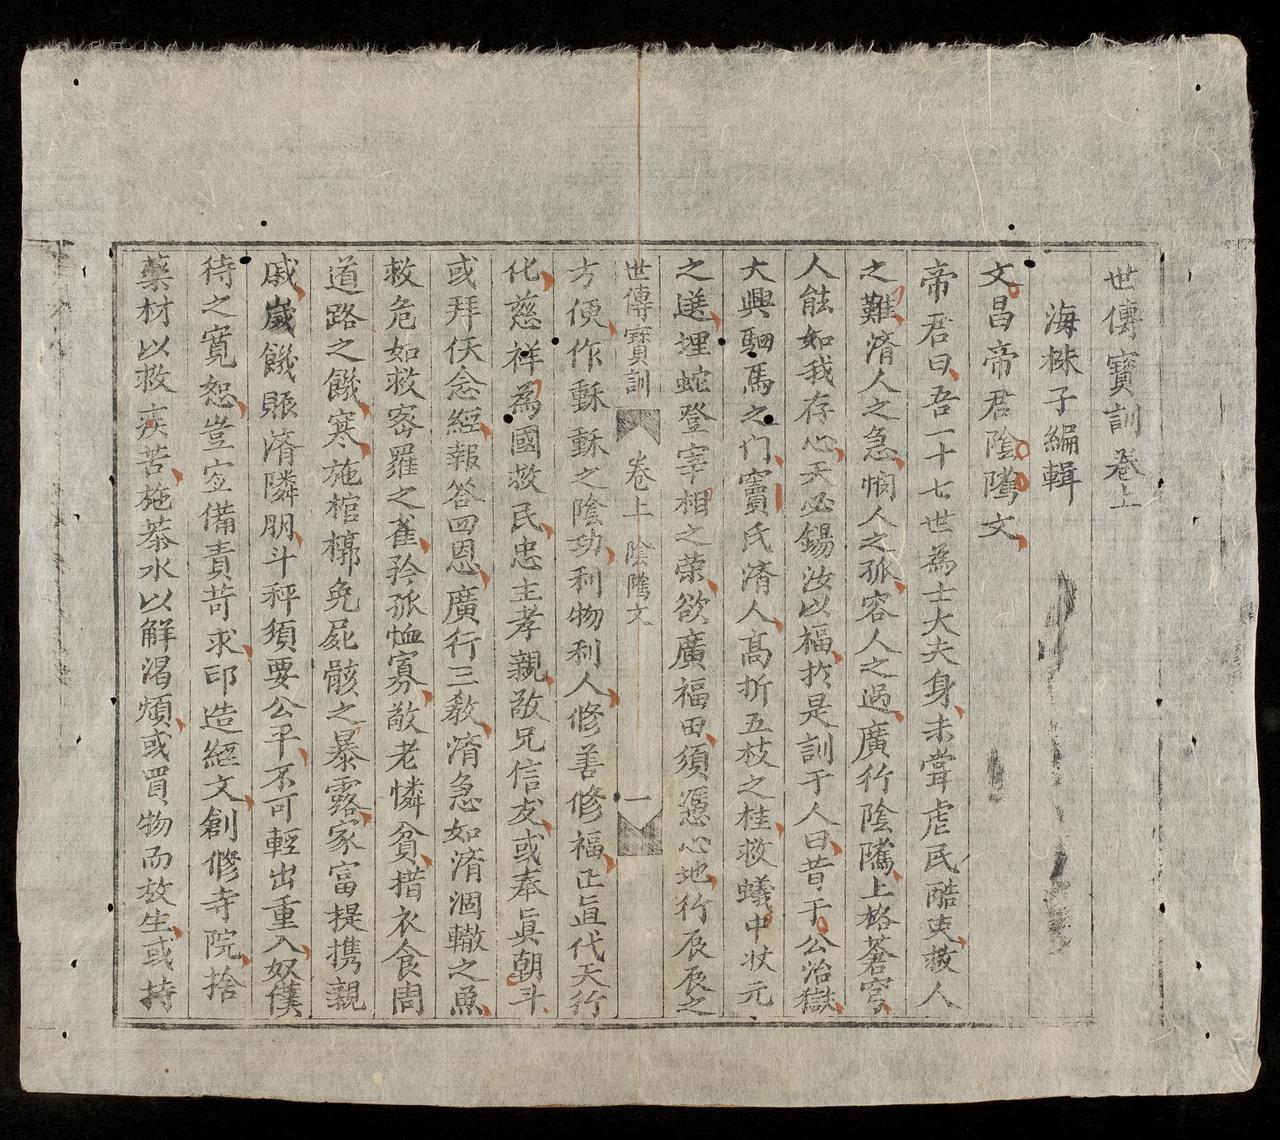 世傳寶訓卷上
海株子編輯
文昌帝君陰隲文
帝君曰吾一十七世為士大夫身未甞虐民酷吏救人
之難濟人之急憫人之孤容人之過廣行陰隲上格蒼穹
人能如我存心天必錫汝以福於是訓于人曰昔于公治獄
大興駟馬之门竇氏濟人高折五枝之桂救蟻中状元
之選埋蛇登宰相之荣欲廣福田須憑心地行辰辰之
世傳寶訓 卷上 陰隲文 一
方便作穌穌之陰功利物利人修善修福正直代天行
化慈祥為國救民忠主孝親敬兄信友或奉眞朝斗
或拜伏念經報答四恩廣行三教濟急如濟涸轍之魚
救危如救宻羅之雀矜孤恤寡敬老憐貧措衣食周
道路之饑寒施棺槨免屍骸之暴露家富提携親
戚嵗饑賑濟隣朋斗秤須要公平不可輕出重入奴僕
待之寛恕豈宜備責苛求印造經文創修寺院捨
藥材以救疾苦施茶水以解渴煩或買物而放生或持